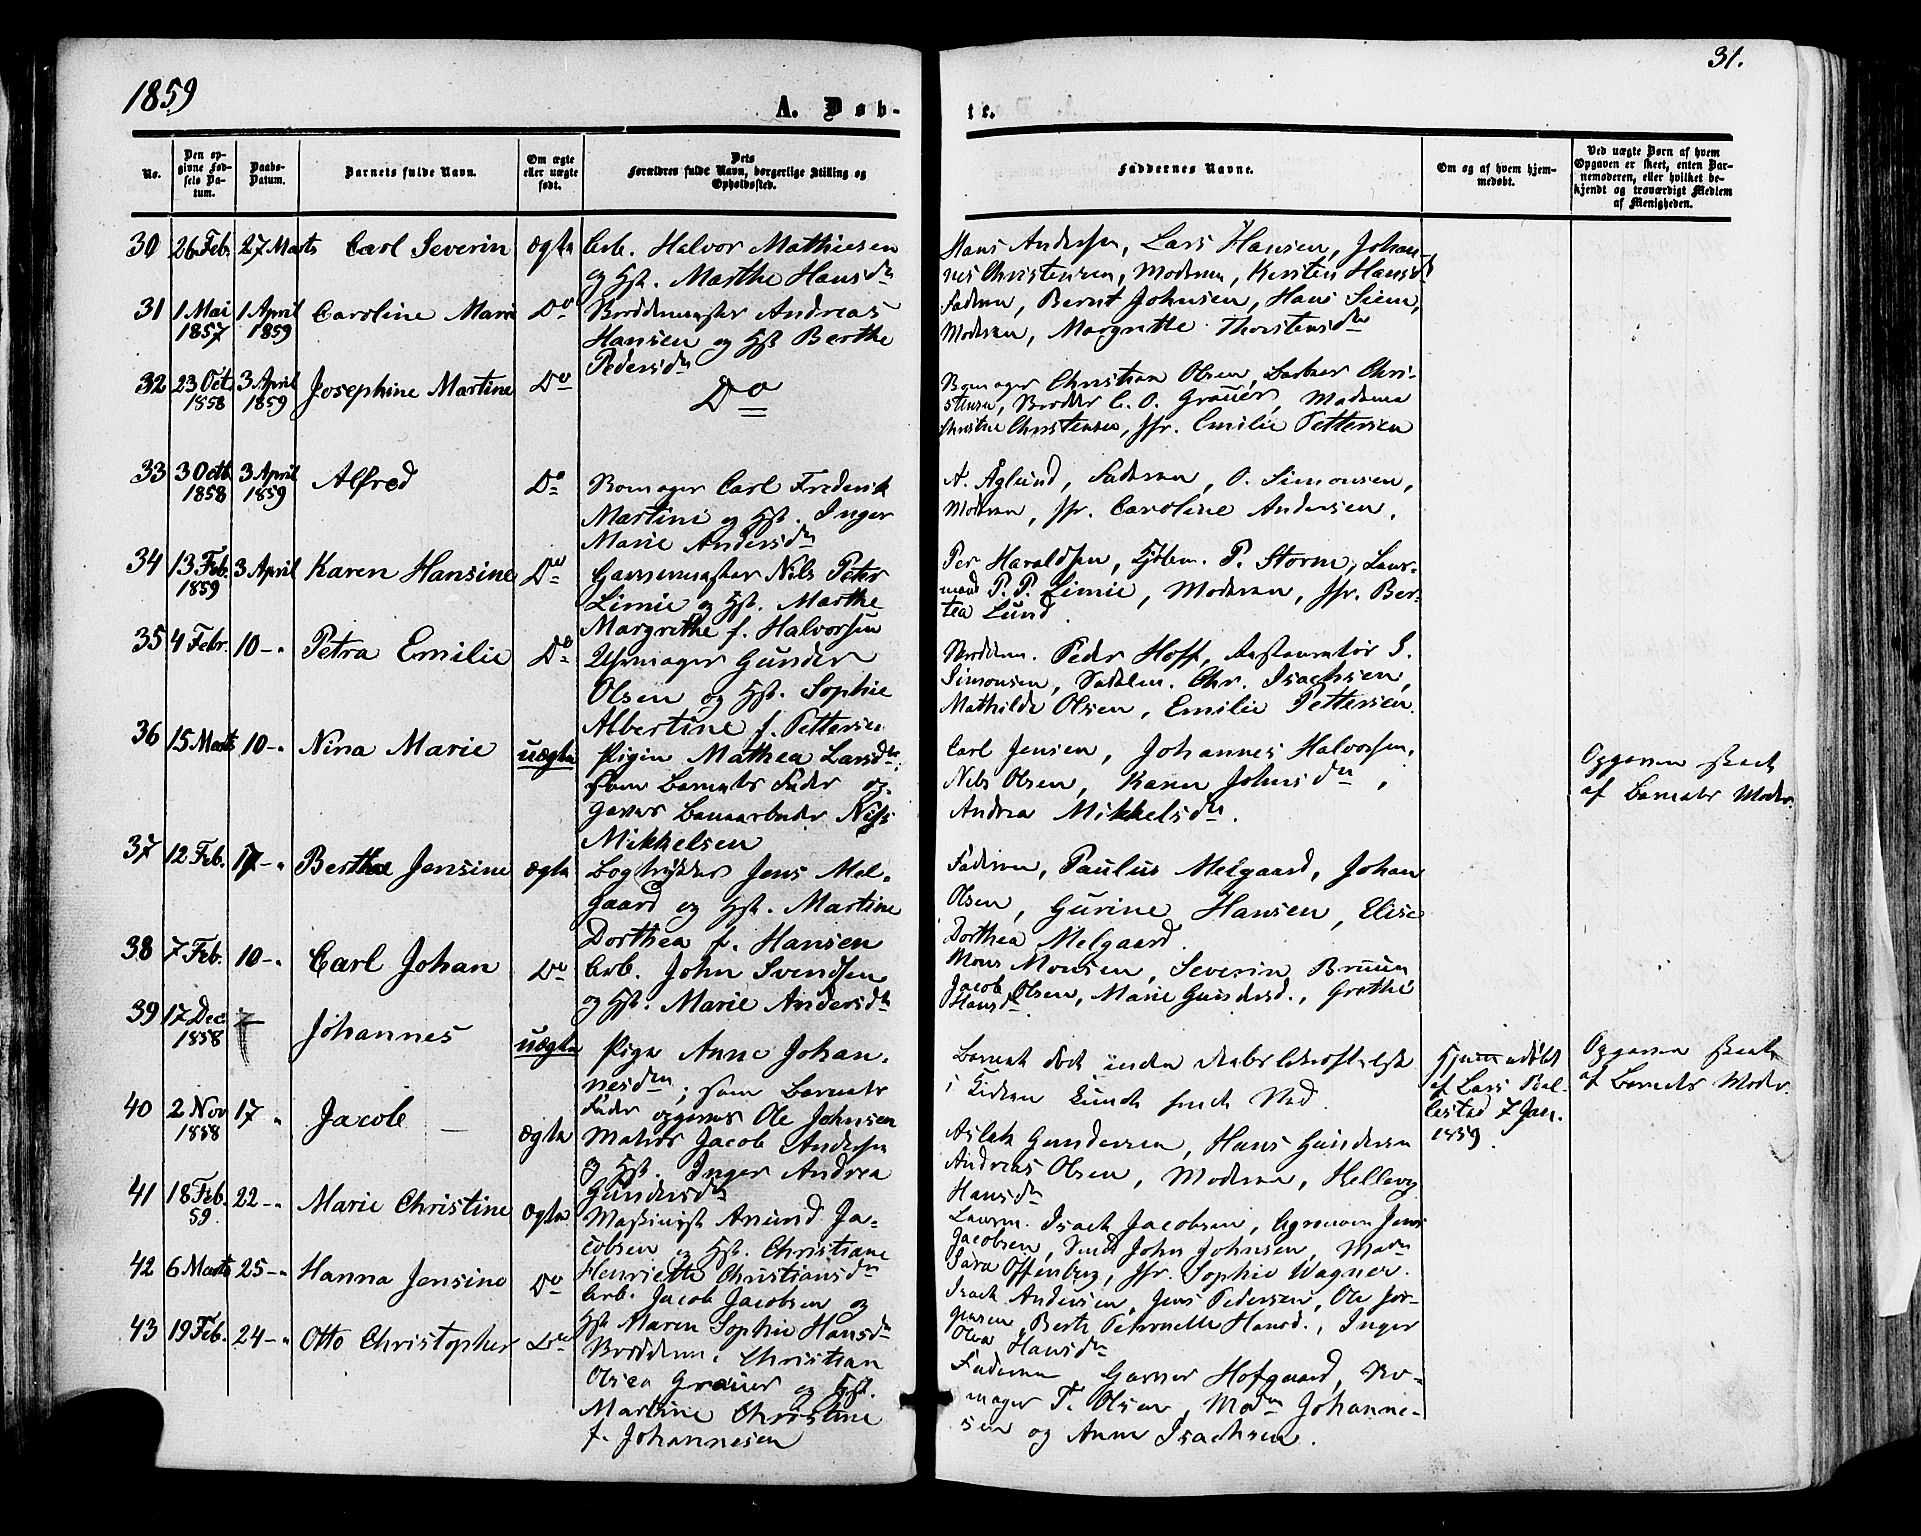 1859
31.
A. Døb-
te.
No.
Den op-
givne Fød-
sels Da-
tum.
Daabs-
Datum.
Barnets fulde Navn.
Om ægte
eller uægte
født.
Dets
Forældres fulde Navn, borgerlige Stilling og
Opholdssted.
Faddernes Navne.
Om og af hvem hjem-
medøbt.
Ved uægte Børn af hvem
Opgaven er skeet, enten Bar-
nemoderen, eller hvilket be-
kjendt og troværdigt Medlem
af Menigheden.
30 26 Feb. 27 Marts Carl Severin ægte Arb. Halvor Mathiesen
og Hst. Marthe Hansdr
Hans Andersen, Lars Hansen, Johan-
nes Christensen, Moderen, Kirsten Hansd
31 1 Mai 1 April Caroline Marie Do Andreas
1857 1859
Hansen og Hst Berthe
Pedersdr
Faderen, Bernt Johnsen, Hans Siem,
Moderen, Margrethe Thorstensdr
32 23 Oct. 3 April Josephine Martine Do Do
1858 1859
Christian Olsen, Chri-
stensen, C. O. Graüer, Madame
Christine Christensen, Jfr. Emilie Pettersen
33 3 Octb. 3 April Alfred Do
1858 1859
Carl Frederik
Martini og Hst. Inger
Marie Andersdr
A. Åglund, Faderen, O. Simonsen,
Moderen, Jfr. Caroline Andersen.
34 13 Feb. 3 April Karen Hansine Do Garvermester Nils Peter
1859
Limie og Hst. Marthe
Margrethe f. Halvorsen
Per Haraldsen, Kjøbm. P. Storm, Laur-
P. P. Limie, Moderen, Jfr. Ber-
tea Lund.
35 4 Febr. 10 - " Petra Emilie Do Uhrmager Gunder
Olsen og Hst. Sophie
Albertine f. Pettersen
Peder Hoff, Restauratør S.
Simonsen, Chr. Isachsen,
Mathilde Olsen, Emilie Pettersen.
36 15 Marts 10 - " Nina Marie uægte Pigen Mathea Larsdr,
som Barnets Fader op-
gaves Nils
Mikkelsen
Carl Jensen, Johannes Halvorsen,
Nils Olsen, Karen Johnsdr,
Andrea Mikkelsdr.
Opgaven skeet
af Barnets Moder.
37 12 Feb. 17 - " Berthe Jensine ægte Bogtrykker Jens Mel-
gaard og Hst. Martine
Dorthea f. Hansen
Faderen, Paulus Melgaard, Johan
Olsen, Gurine Hansen, Elise
Dorthea Melgaard.
38 7 Feb. 10 - " Carl Johan Do Arb. John Svendsen
og Hst. Marie Andersdr
Mons Monsen, Severin Bruun
Jacob Olsen, Marie Gundersd., Grethe
Hansdr
39 17 Dec Johannes uægte Pige Anne Johan-
1858
nesdr; som Barnets
Fader opgaves Ole Johnsen
Barnet død inden
i Kirken kunde finde Sted.
Hjemmedøbt
af Lars Bal-
lestad 7 Jan.
1859.
Opgaven skeet
af Barnets Moder.
40 2 Nov 17 " Jacob ægte Matros Jacob Andersen
1858
og Hst. Inger Andrea
Gundersdr
Aslak Gundersen, Hans Gundersen
Andreas Olsen, Moderen, Hellevig
Hansdr
41 18 Feb. 22 - " Marie Christine ægte Maskinist Anund Ja-
59.
cobsen og Hst. Christiane
Henriette Christiansdr
Isach Jacobsen, Jens
Jacobsen, John Johnsen, Madm
Sara Offenberg, Jfr. Sophie Wagner.
42 6 Marts 25 - " Hanna Jensine Do Arb. Jacob Jacobsen og
Hst Maren Sophie Hansdr
Isach Andersen, Jens Pedersen, Ole Jør-
gensen, Berte Petronelle Hansd., Inger
Olea Hansdr
43 19 Feb. 24 - " Otto Christopher Do Christian
Olsen Graüer og Hst.
Martine Christine
f. Johannesen
Faderen Garver Hofgaard,
T. Olsen, Madm Johanne-
sen og Anne Isachsen.